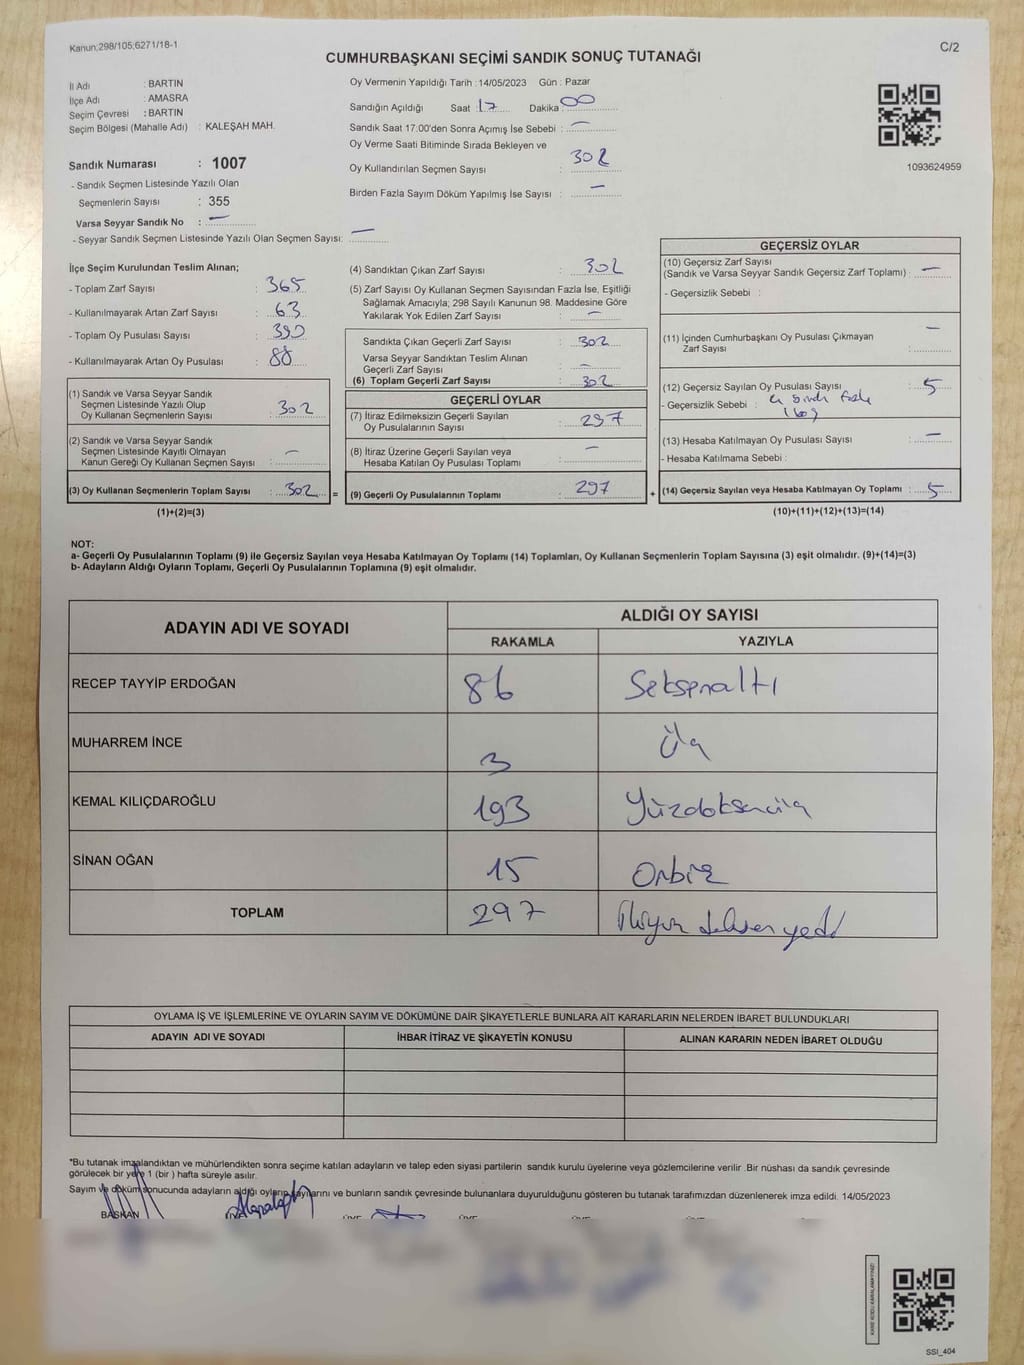 Kanun:298/105;6271/18-1
C/2
CUMHURBAŞKANI SEÇİMİ SANDIK SONUÇ TUTANAĞI
İl Adı : BARTIN
İlçe Adı : AMASRA
Seçim Çevresi : BARTIN
Seçim Bölgesi (Mahalle Adı) : KALEŞAH MAH.
Sandık Numarası : 1007
- Sandık Seçmen Listesinde Yazılı Olan
Seçmenlerin Sayısı : 355
Varsa Seyyar Sandık No : —
- Seyyar Sandık Seçmen Listesinde Yazılı Olan Seçmen Sayısı: —
Oy Vermenin Yapıldığı Tarih :14/05/2023 Gün : Pazar
Sandığın Açıldığı Saat :17 Dakika : 00
Sandık Saat 17:00'den Sonra Açımış İse Sebebi : —
Oy Verme Saati Bitiminde Sırada Bekleyen ve
Oy Kullandırılan Seçmen Sayısı : 302
Birden Fazla Sayım Döküm Yapılmış İse Sayısı : —
1093624959
İlçe Seçim Kurulundan Teslim Alınan;
- Toplam Zarf Sayısı : 365
- Kullanılmayarak Artan Zarf Sayısı : 63
- Toplam Oy Pusulası Sayısı : 390
- Kullanılmayarak Artan Oy Pusulası : 88
(1) Sandık ve Varsa Seyyar Sandık
Seçmen Listesinde Yazılı Olup
Oy Kullanan Seçmenlerin Sayısı : 302
(2) Sandık ve Varsa Seyyar Sandık
Seçmen Listesinde Kayıtlı Olmayan
Kanun Gereği Oy Kullanan Seçmen Sayısı : —
(3) Oy Kullanan Seçmenlerin Toplam Sayısı : 302 =
(1)+(2)=(3)
(4) Sandıktan Çıkan Zarf Sayısı : 302
(5) Zarf Sayısı Oy Kullanan Seçmen Sayısından Fazla İse, Eşitliği
Sağlamak Amacıyla; 298 Sayılı Kanunun 98. Maddesine Göre
Yakılarak Yok Edilen Zarf Sayısı : —
Sandıkta Çıkan Geçerli Zarf Sayısı : 302
Varsa Seyyar Sandıktan Teslim Alınan
Geçerli Zarf Sayısı : —
(6) Toplam Geçerli Zarf Sayısı : 302
GEÇERLİ OYLAR
(7) İtiraz Edilmeksizin Geçerli Sayılan
Oy Pusulalarının Sayısı : 297
(8) İtiraz Üzerine Geçerli Sayılan veya
Hesaba Katılan Oy Pusulası Toplamı : —
(9) Geçerli Oy Pusulalarının Toplamı : 297 +
GEÇERSİZ OYLAR
(10) Geçersiz Zarf Sayısı
(Sandık ve Varsa Seyyar Sandık Geçersiz Zarf Toplamı) : —
- Geçersizlik Sebebi :
(11) İçinden Cumhurbaşkanı Oy Pusulası Çıkmayan
Zarf Sayısı : —
(12) Geçersiz Sayılan Oy Pusulası Sayısı : 5
- Geçersizlik Sebebi :
(13) Hesaba Katılmayan Oy Pusulası Sayısı : —
- Hesaba Katılmama Sebebi :
(14) Geçersiz Sayılan veya Hesaba Katılmayan Oy Toplamı : 5
(10)+(11)+(12)+(13)=(14)
NOT:
a- Geçerli Oy Pusulalarının Toplamı (9) ile Geçersiz Sayılan veya Hesaba Katılmayan Oy Toplamı (14) Toplamları, Oy Kullanan Seçmenlerin Toplam Sayısına (3) eşit olmalıdır. (9)+(14)=(3)
b- Adayların Aldığı Oyların Toplamı, Geçerli Oy Pusulalarının Toplamına (9) eşit olmalıdır.
ADAYIN ADI VE SOYADI
ALDIĞI OY SAYISI
RAKAMLA YAZIYLA
RECEP TAYYİP ERDOĞAN 86 Seksenaltı
MUHARREM İNCE 3 Üç
KEMAL KILIÇDAROĞLU 193 Yüzdoksanüç
SİNAN OĞAN 15 Onbeş
TOPLAM 297 İkiyüz doksan yedi
OYLAMA İŞ VE İŞLEMLERİNE VE OYLARIN SAYIM VE DÖKÜMÜNE DAİR ŞİKAYETLERLE BUNLARA AİT KARARLARIN NELERDEN İBARET BULUNDUKLARI
ADAYIN ADI VE SOYADI İHBAR İTİRAZ VE ŞİKAYETİN KONUSU ALINAN KARARIN NEDEN İBARET OLDUĞU
*Bu tutanak imzalandıktan ve mühürlendikten sonra seçime katılan adayların ve talep eden siyasi partilerin sandık kurulu üyelerine veya gözlemcilerine verilir .Bir nüshası da sandık çevresinde
görülecek bir yere 1 (bir ) hafta süreyle asılır.
Sayım ve döküm sonucunda adayların aldığı oyların sayılarını ve bunların sandık çevresinde bulunanlara duyurulduğunu gösteren bu tutanak tarafımızdan düzenlenerek imza edildi. 14/05/2023
BAŞKAN
SSI_404